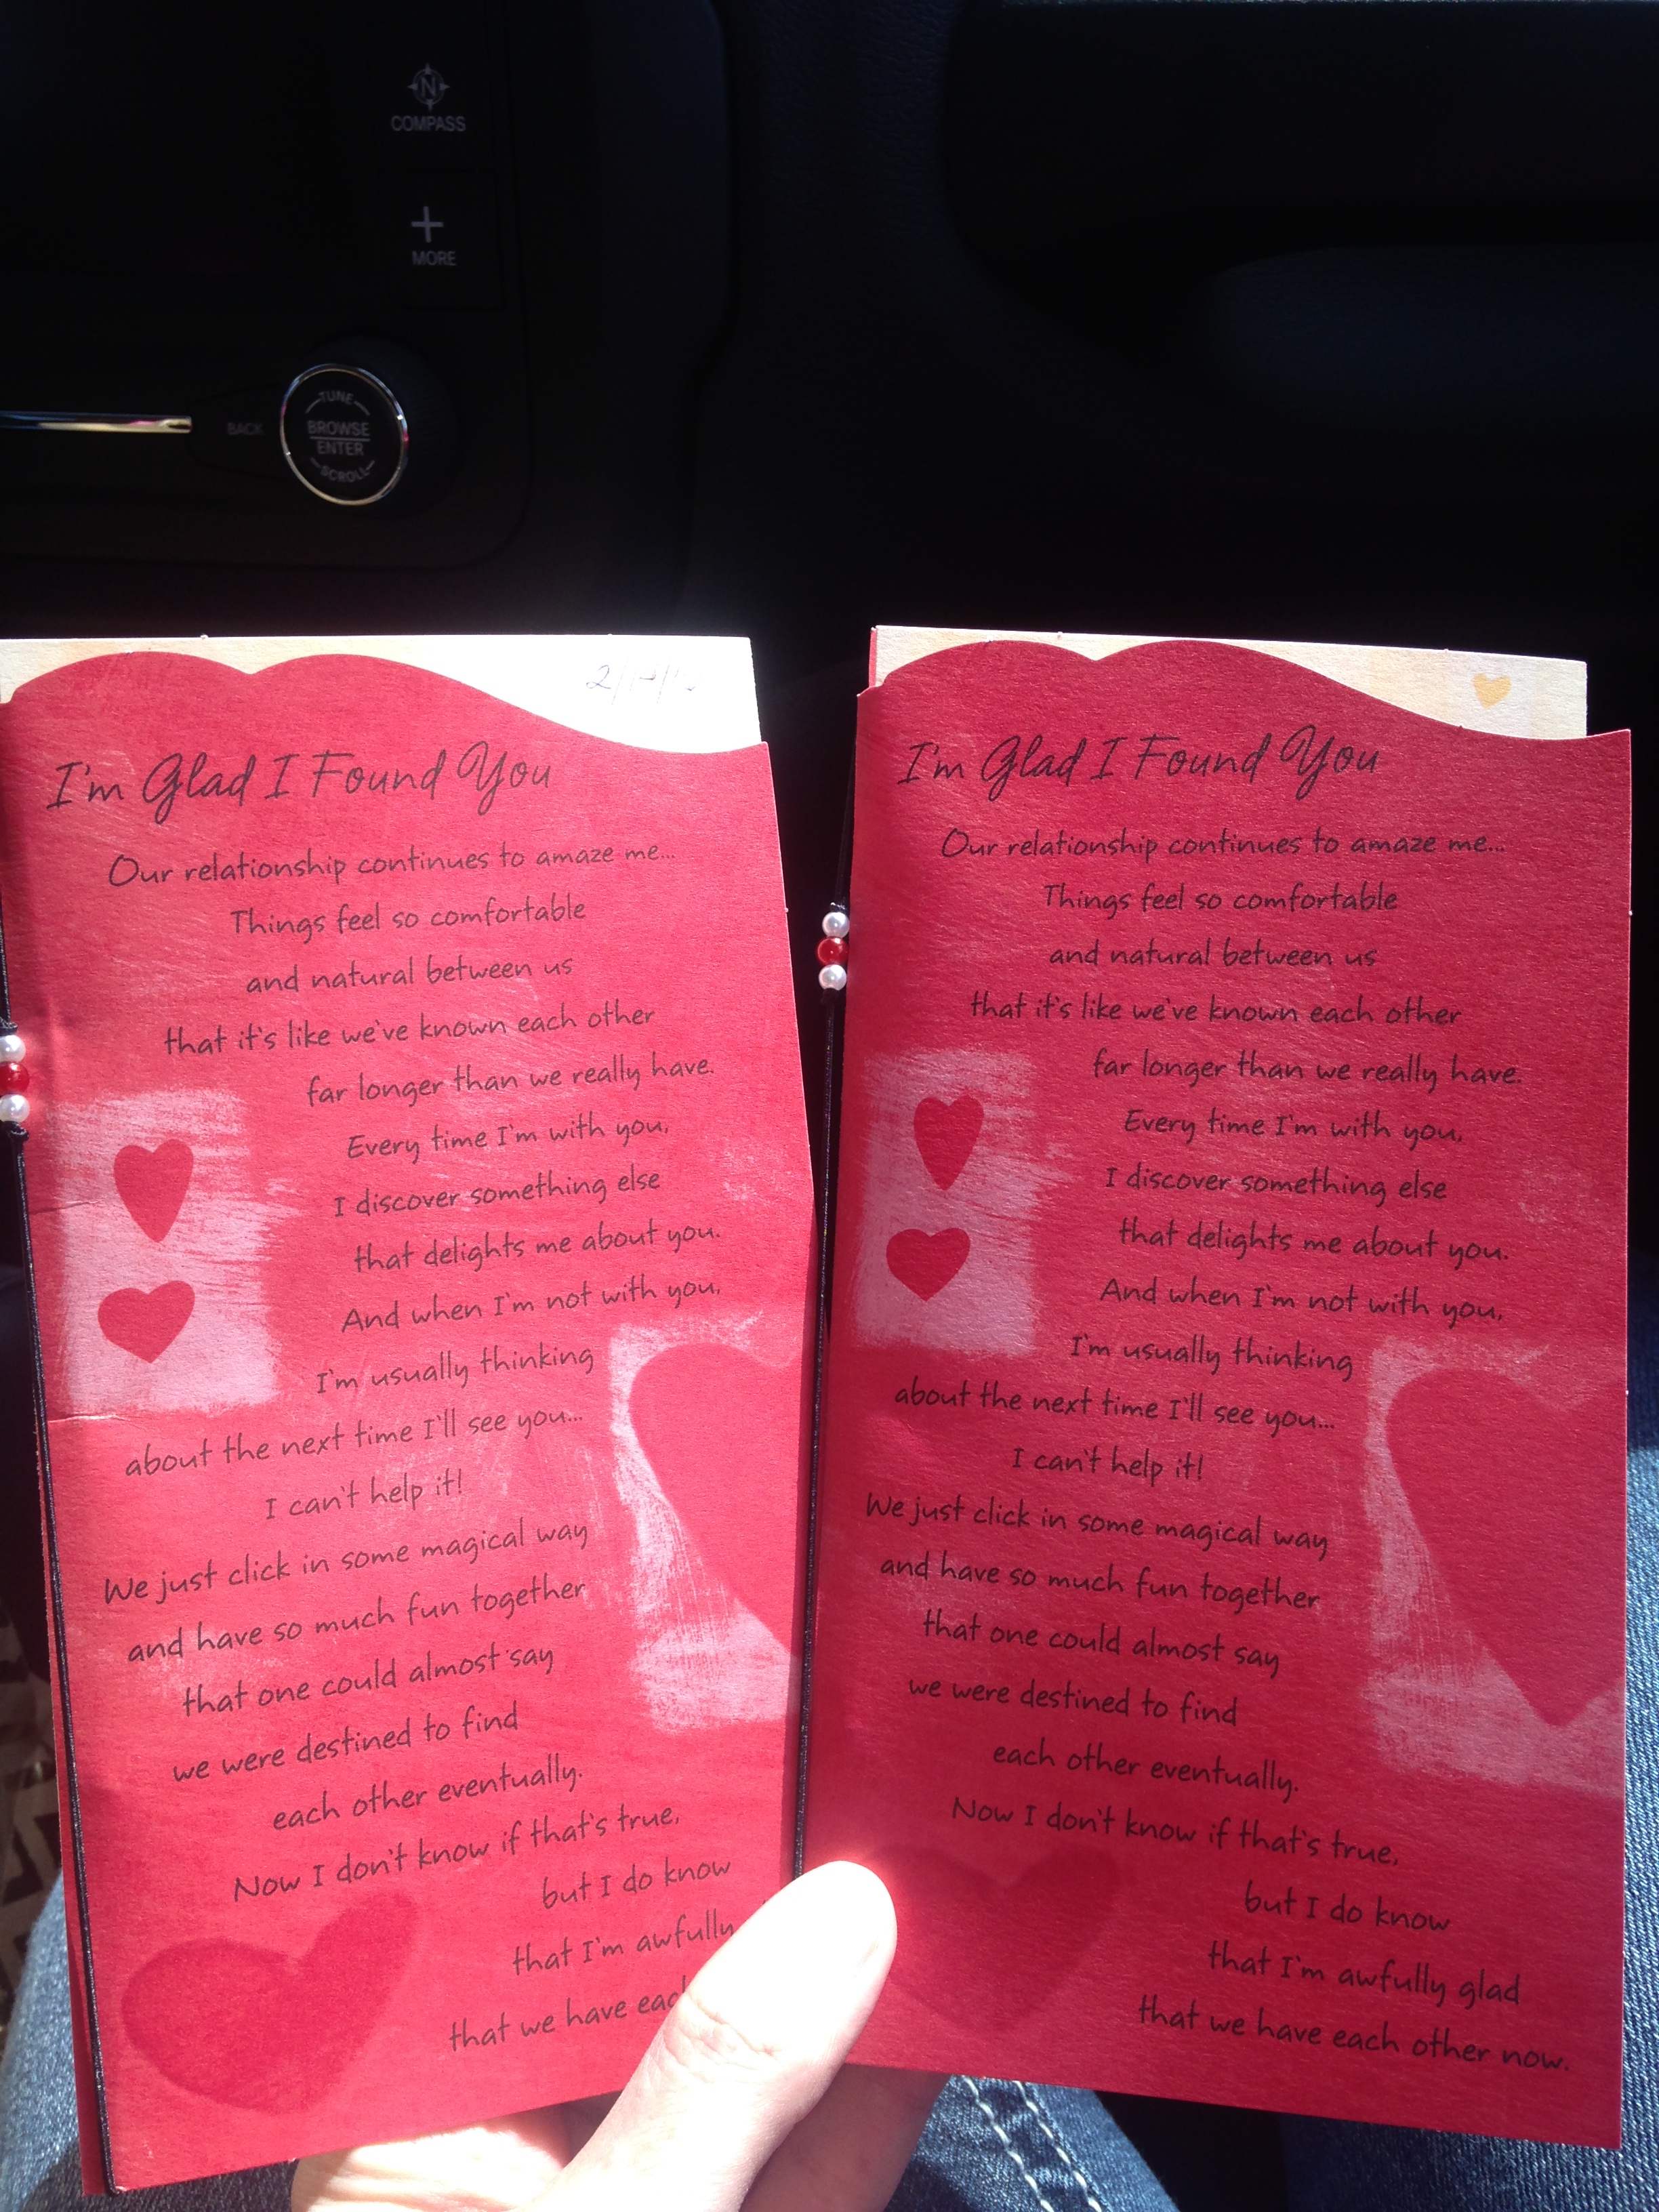 COMPASS
MORE
BACK
TUNE
BROWSE
ENTER
SCROLL
I'm Glad I Found You
Our relationship continues to amaze me...
Things feel so comfortable
and natural between us
that it's like we've known each other
far longer than we really have.
Every time I'm with you,
I discover something else
that delights me about you.
And when I'm not with you,
I'm usually thinking
about the next time I'll see you...
I can't help it!
We just click in some magical way
and have so much fun together
that one could almost say
we were destined to find
each other eventually.
Now I don't know if that's true,
but I do know
that I'm awfully
that we have
I'm Glad I Found You
Our relationship continues to amaze me...
Things feel so comfortable
and natural between us
that it's like we've known each other
far longer than we really have.
Every time I'm with you,
I discover something else
that delights me about you.
And when I'm not with you,
I'm usually thinking
about the next time I'll see you...
I can't help it!
We just click in some magical way
and have so much fun together
that one could almost say
we were destined to find
each other eventually.
Now I don't know if that's true,
but I do know
that I'm awfully glad
that we have each other now.